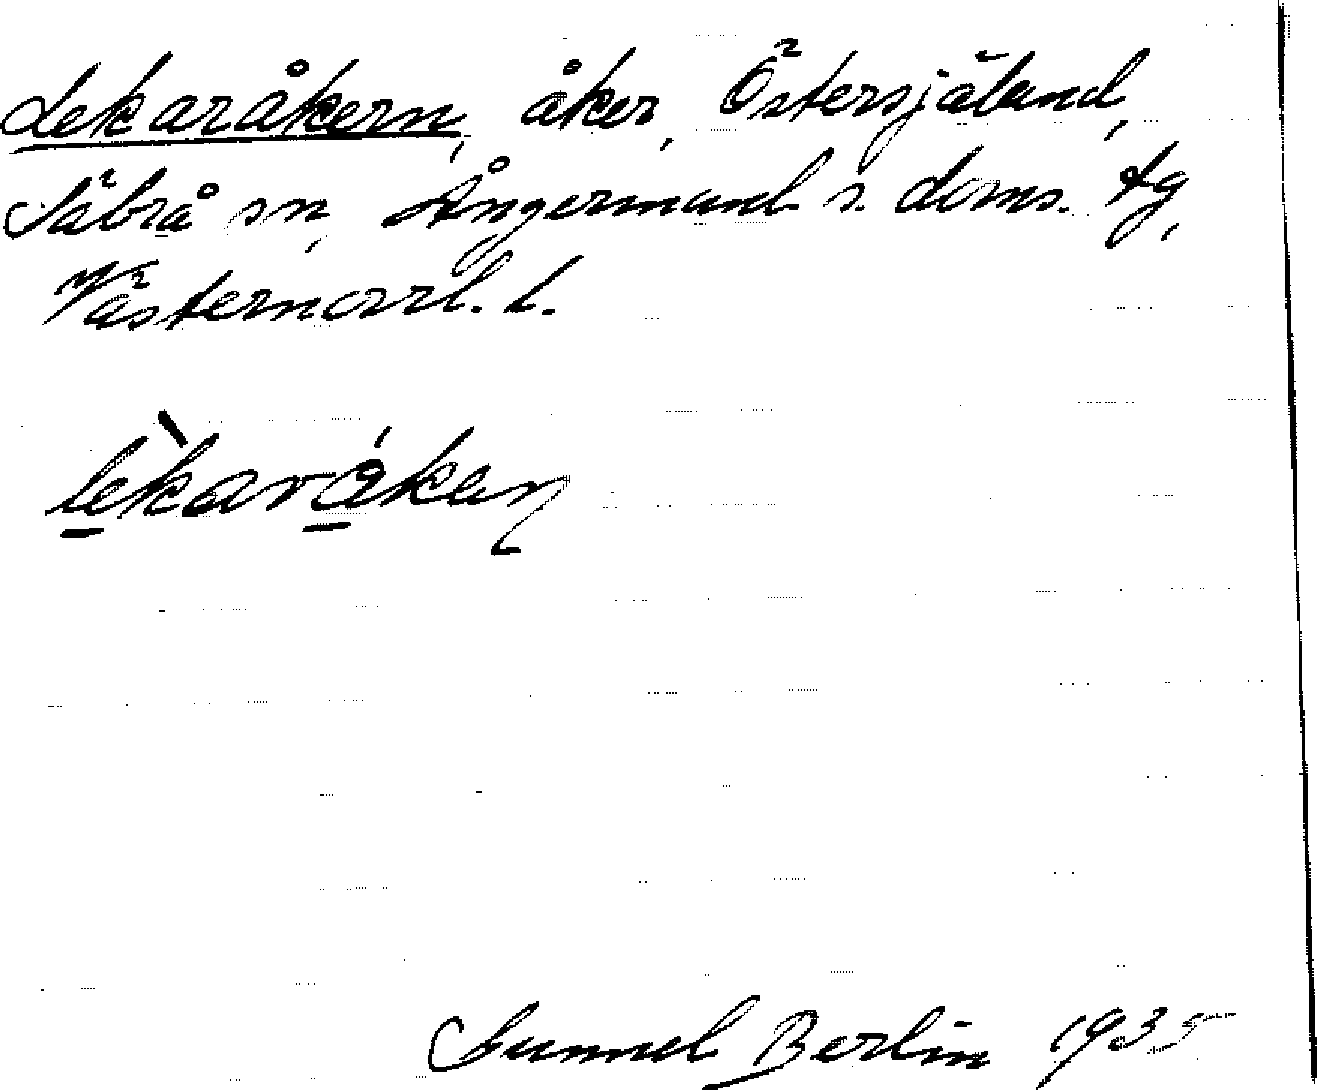 Lekaråkern, åker, Östersjäland,
Säbrå sn, Ångermanl. s. doms. tg,
Västernorrl. l.
lèkaråkaɳ
Gunnel Berlin 1935